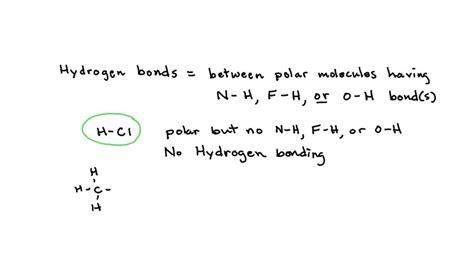 Hydrogen bonds = between polar molecules having
N-H, F-H, or O-H bond(s)
H-Cl polar but no N-H, F-H, or O-H
No Hydrogen bonding
H
H-C-
H